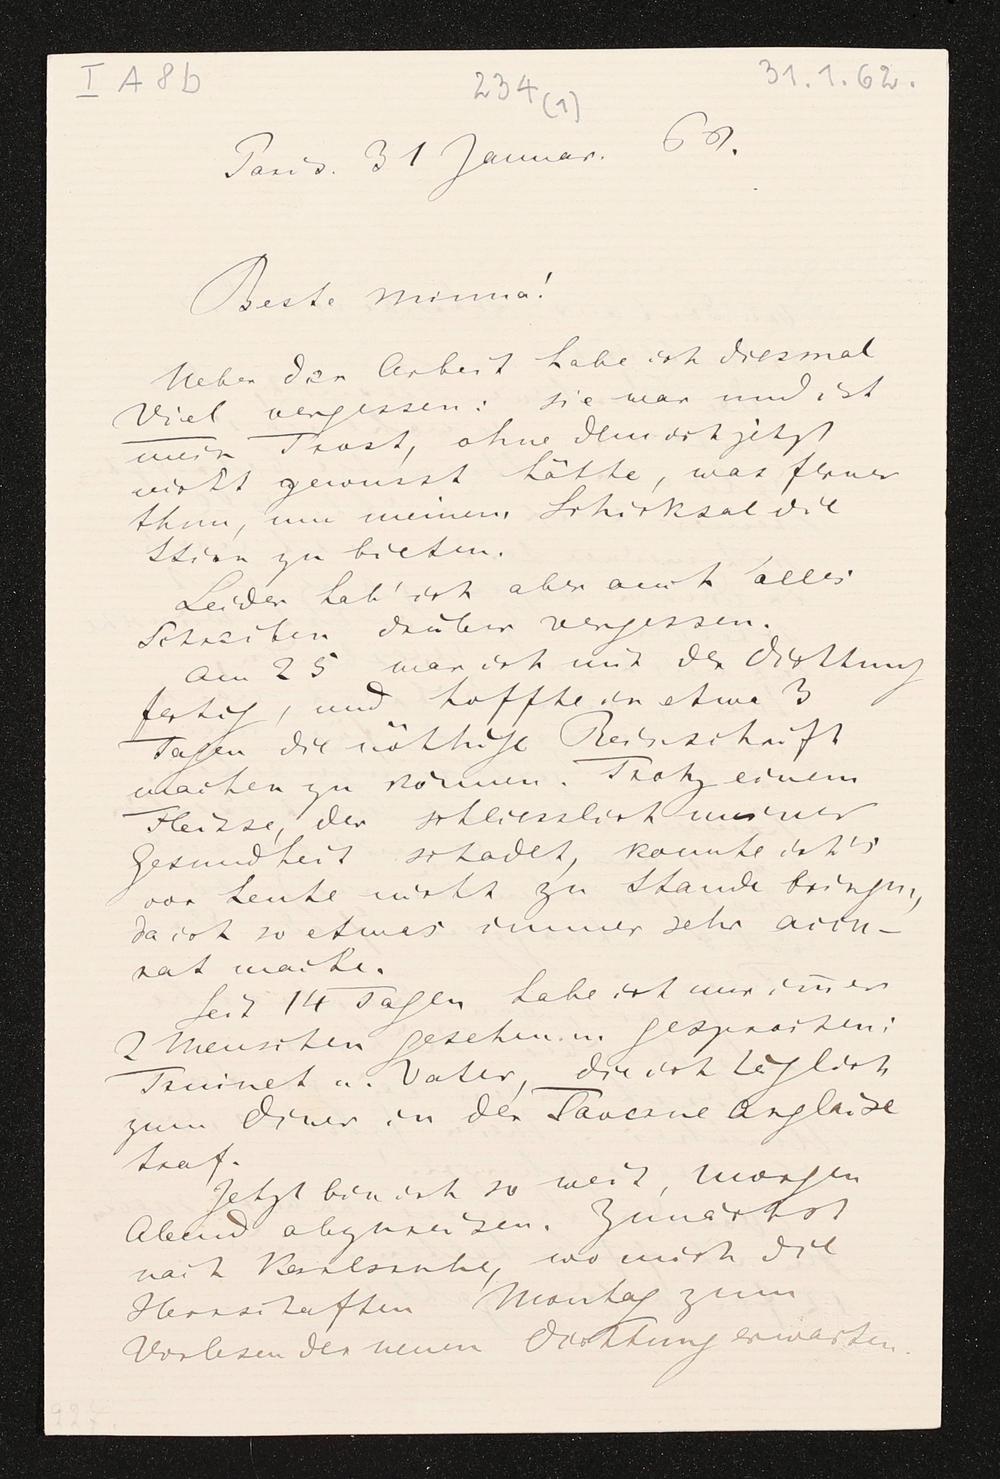 I A 8 b
234 (1)
31.1.62.
Paris. 31 Januar. 62.
Beste Minna!
Ueber der Arbeit habe ich diesmal
Viel vergessen: sie war und ist
mein Trost, ohne den ich jetzt
nicht gewusst hätte, was ferner
thun, um meinem Schicksal die
Stirn zu bieten.
Leider hab' ich aber auch alles
Schreiben drüber vergessen.
Am 25 war ich mit der Dichtung
fertig, und hoffte in etwa 3
Tagen die nöthige Reinschrift
machen zu können. Trotz einem
Fleisse, der schliesslich meiner
Gesundheit schadet, konnte ich's
vor heute nicht zu Stande bringen,
da ich so etwas immer sehr accu-
rat mache.
Seit 14 Tagen habe ich nur im̅er
2 Menschen gesehen u. gesprochen:
Truinet u. Vater, die ich täglich
zum Diner in der Taverne Anglaise
traf.
Jetzt bin ich so weit, morgen
Abend abzureisen. Zunächst
nach Karlsruhe, wo mich die
Herrschaften Montag zum
Vorlesen der neuen Dichtung erwarten.